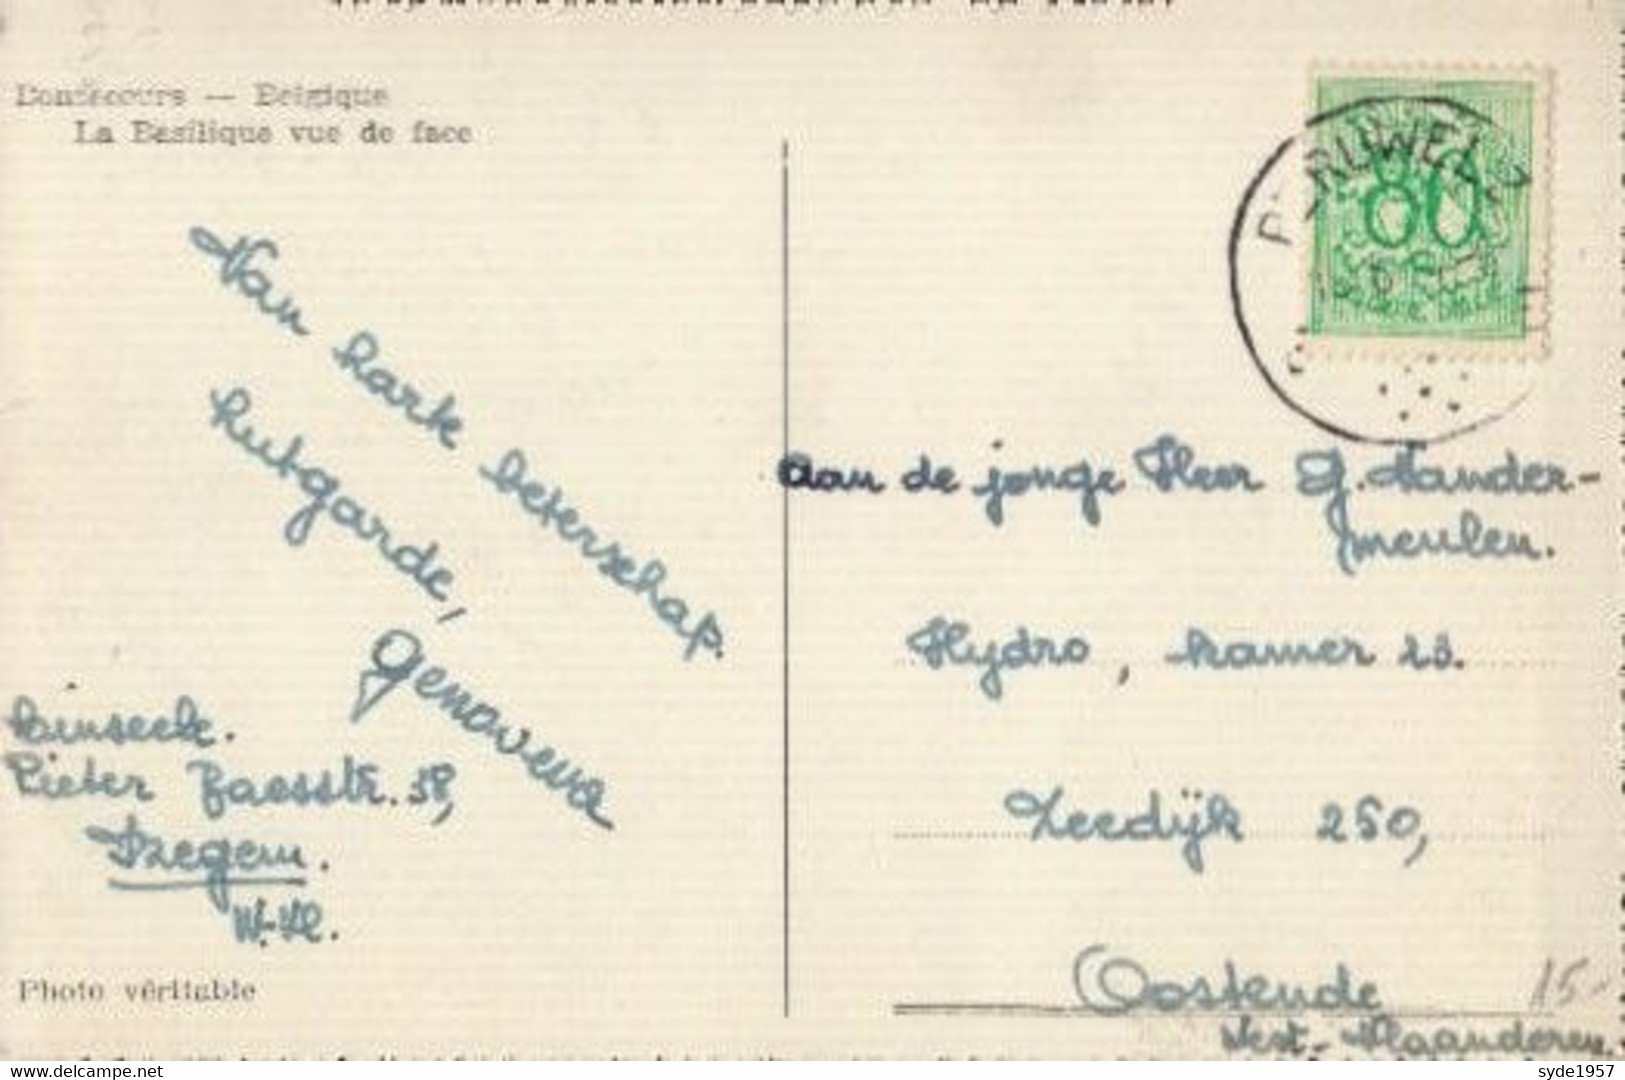 Bonsecours — Belgique
La Basilique vue de face
Van harte beterschap.
Lutgarde,
Genoveva
Pieter Baesstr. 38,
Izegem.
W.-Vl.
Photo véritable
PERUWELZ
80
Aan de jonge Heer G. Vander-
meulen.
Hydro, kamer 23.
Zeedijk 250,
Oostende
West-Vlaanderen.
15.-
www.delcampe.net
syde1957